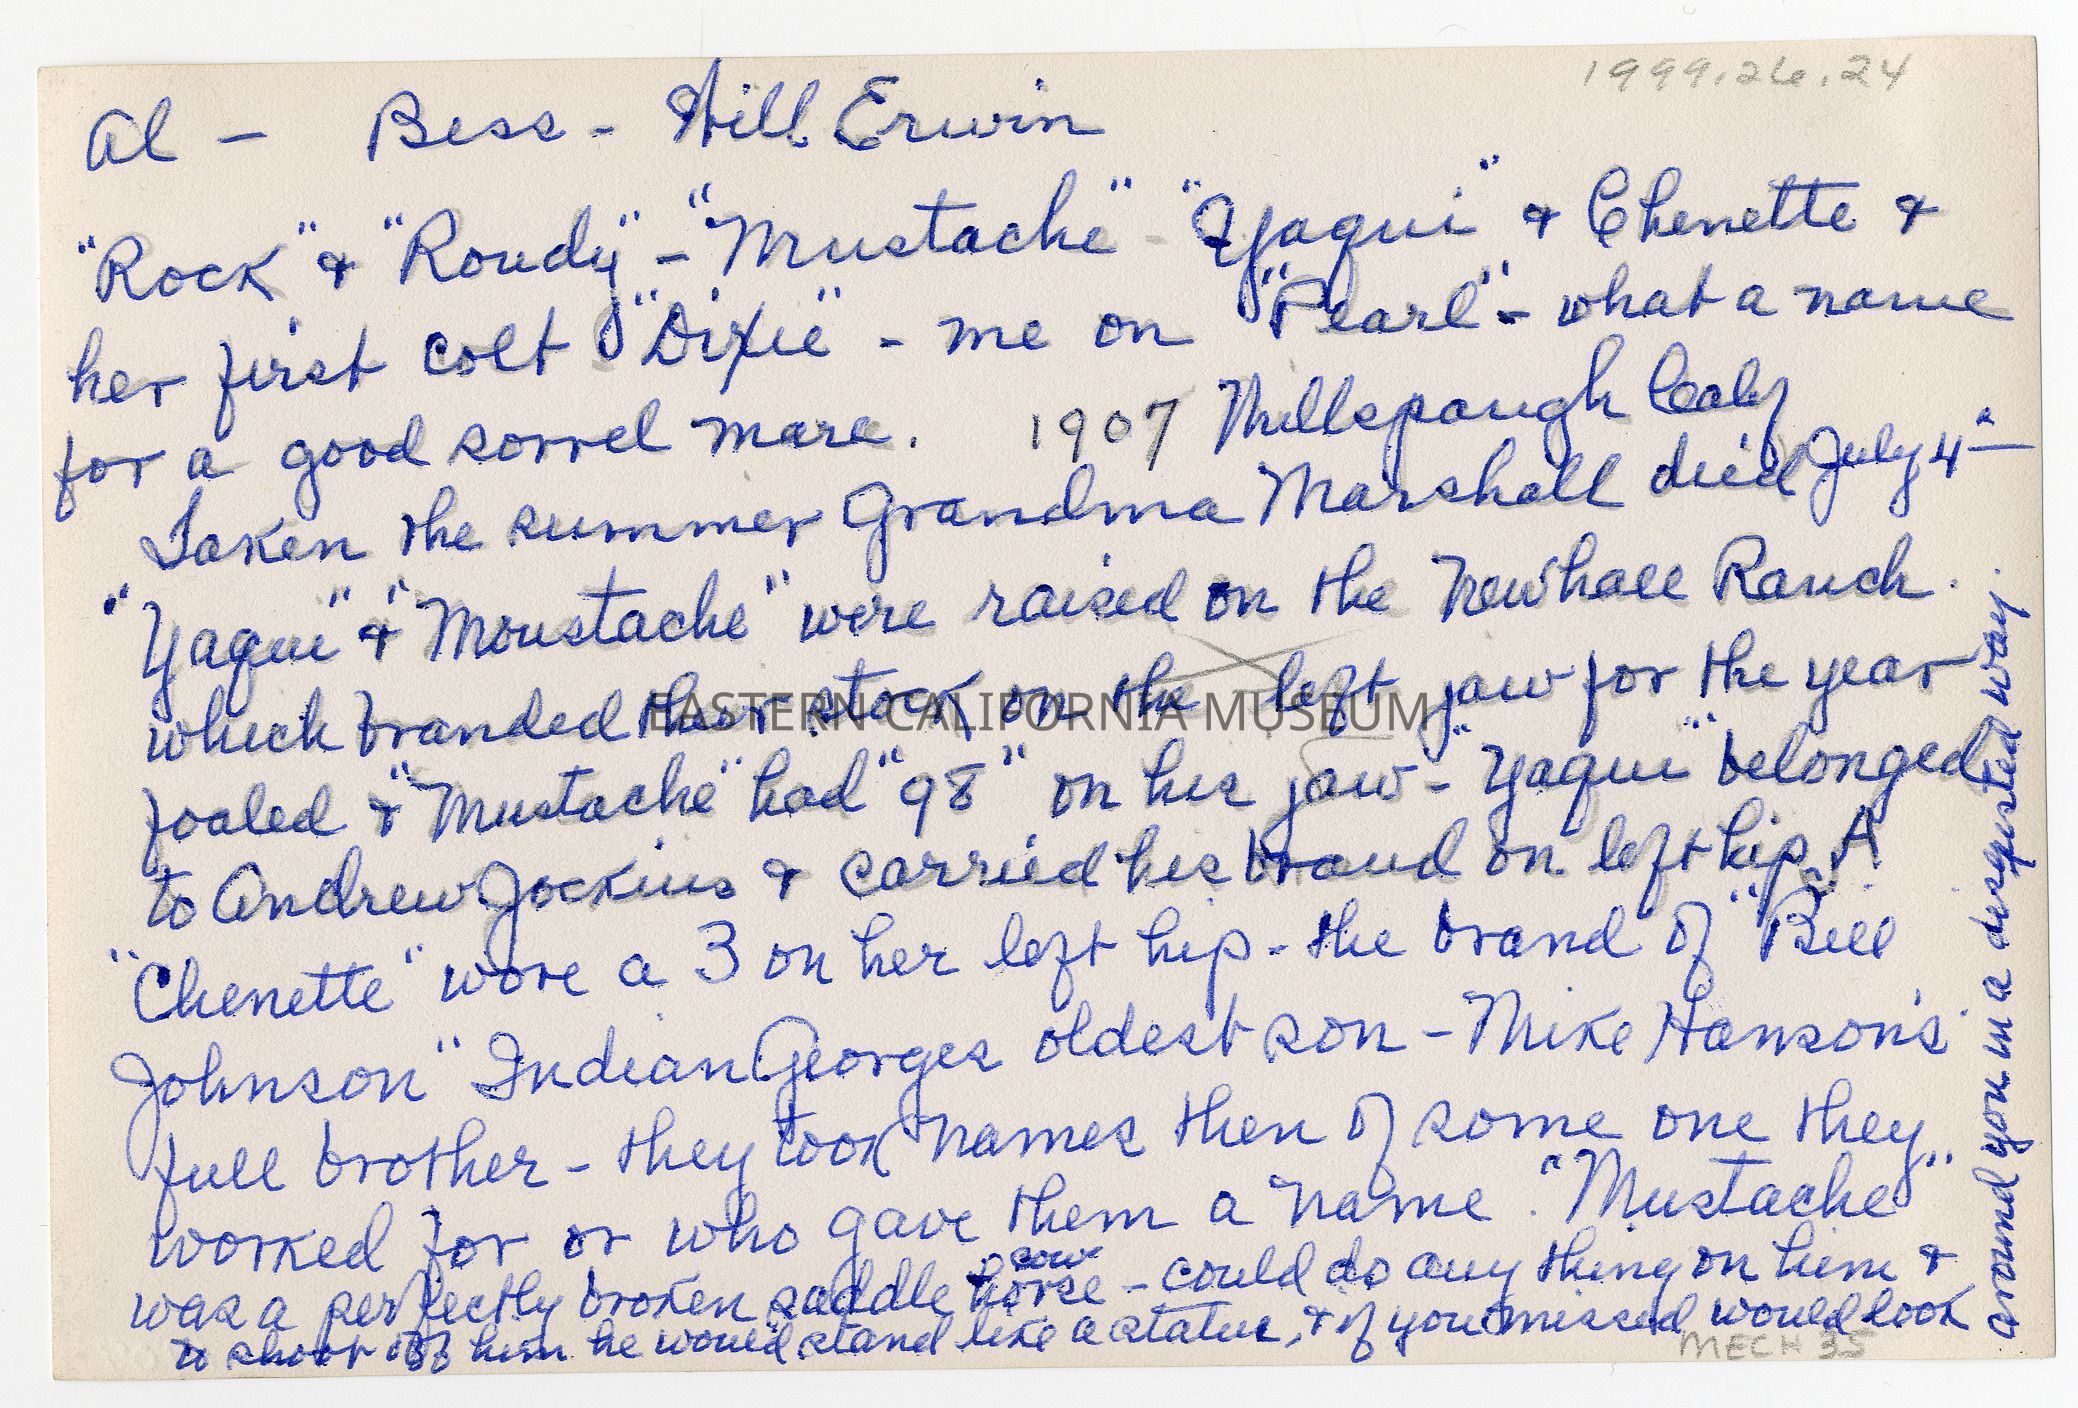 1999.26.24
Al - Bess - Hill Erwin
"Rock" & "Roudy" - "Mustache" - "Yaqui" & Chenette &
her first colt "Dixie" - me on "Pearl" - what a name
for a good sorrel mare. 1907 Millspaugh Calif
Taken the summer Grandma Marshall died July 4th
"Yaqui" & "Moustache" were raised on the Newhall Ranch.
which branded their stock on the left jaw for the year
foaled & "Mustache" had "98" on his jaw - "Yaqui" belonged
to Andrew Jockins & carried his brand on left hip. A
"Chenette" wore a 3 on her left hip - the brand of "Bill
Johnson" Indian Georges oldest son - Mike Hanson's
full brother - they took names then of some one they
worked for or who gave them a name. "Mustache"
was a perfectly broken saddle & cow horse - could do any thing on him &
to shoot off him he would stand like a statue, & if you missed would look
around you in a disgusted way.
EASTERN CALIFORNIA MUSEUM
MECH 35